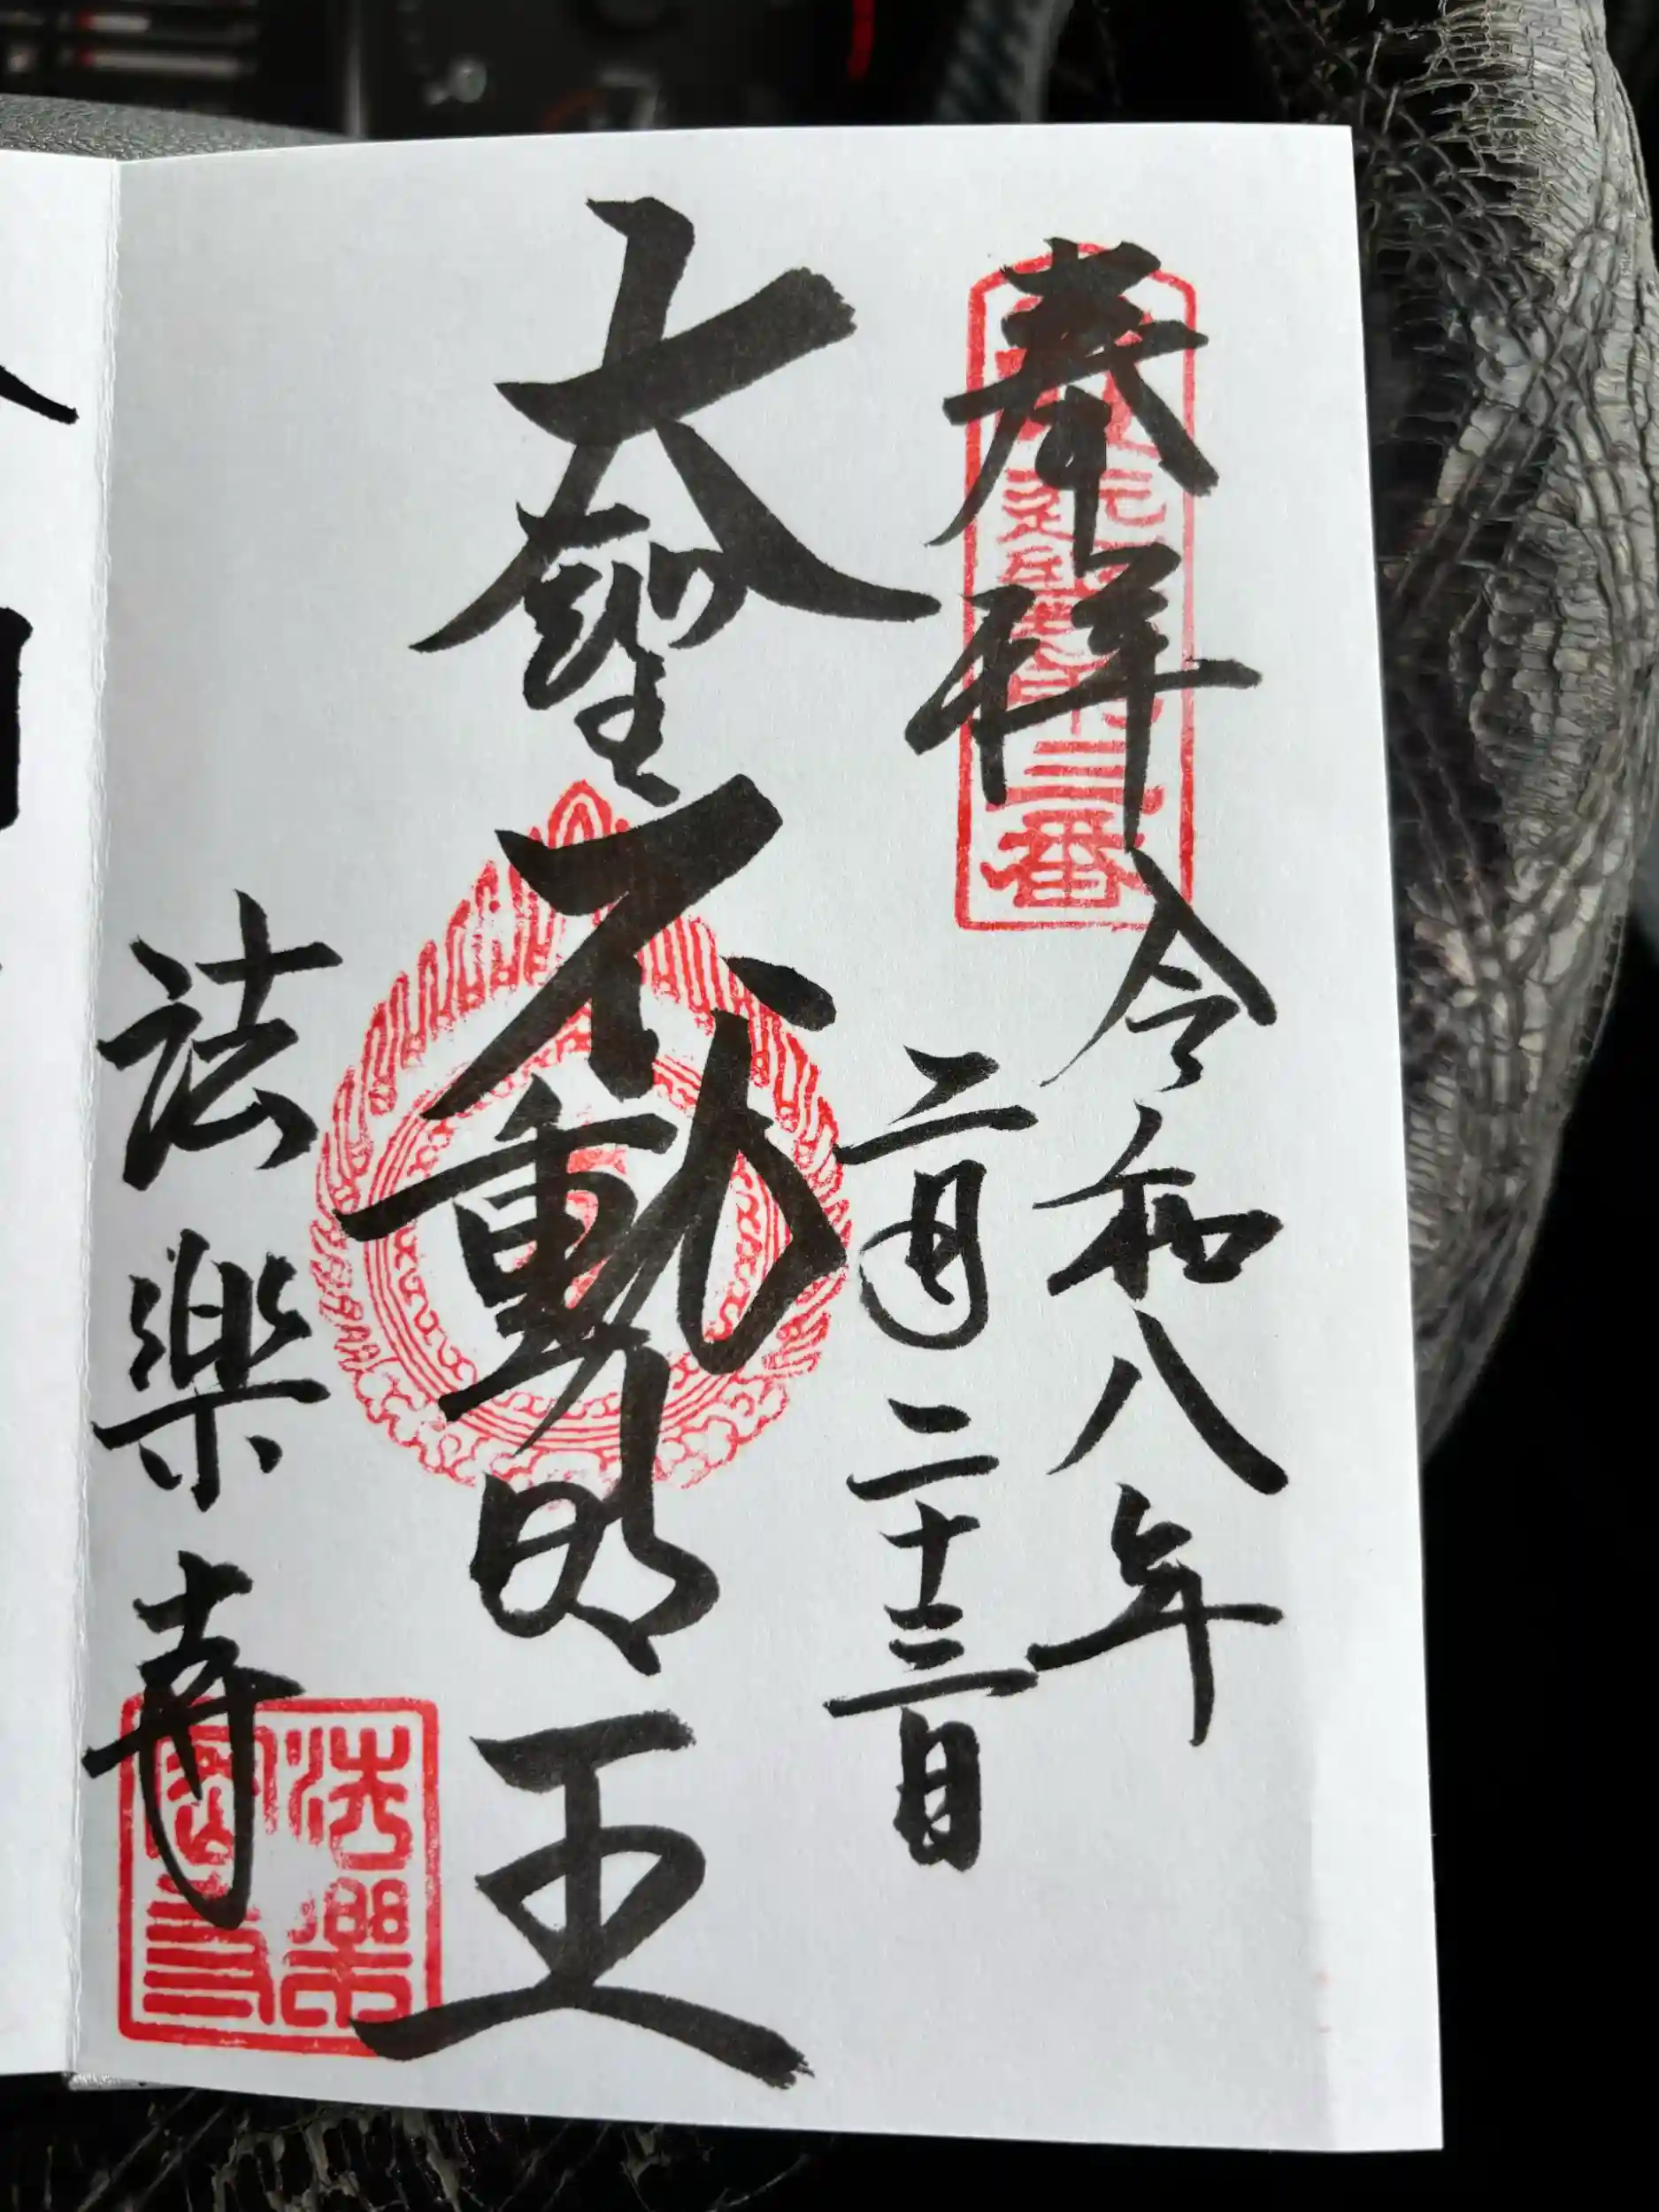 奉拝
令和八年
二月二十三日
大聖不動明王
法楽寺
三番
法樂